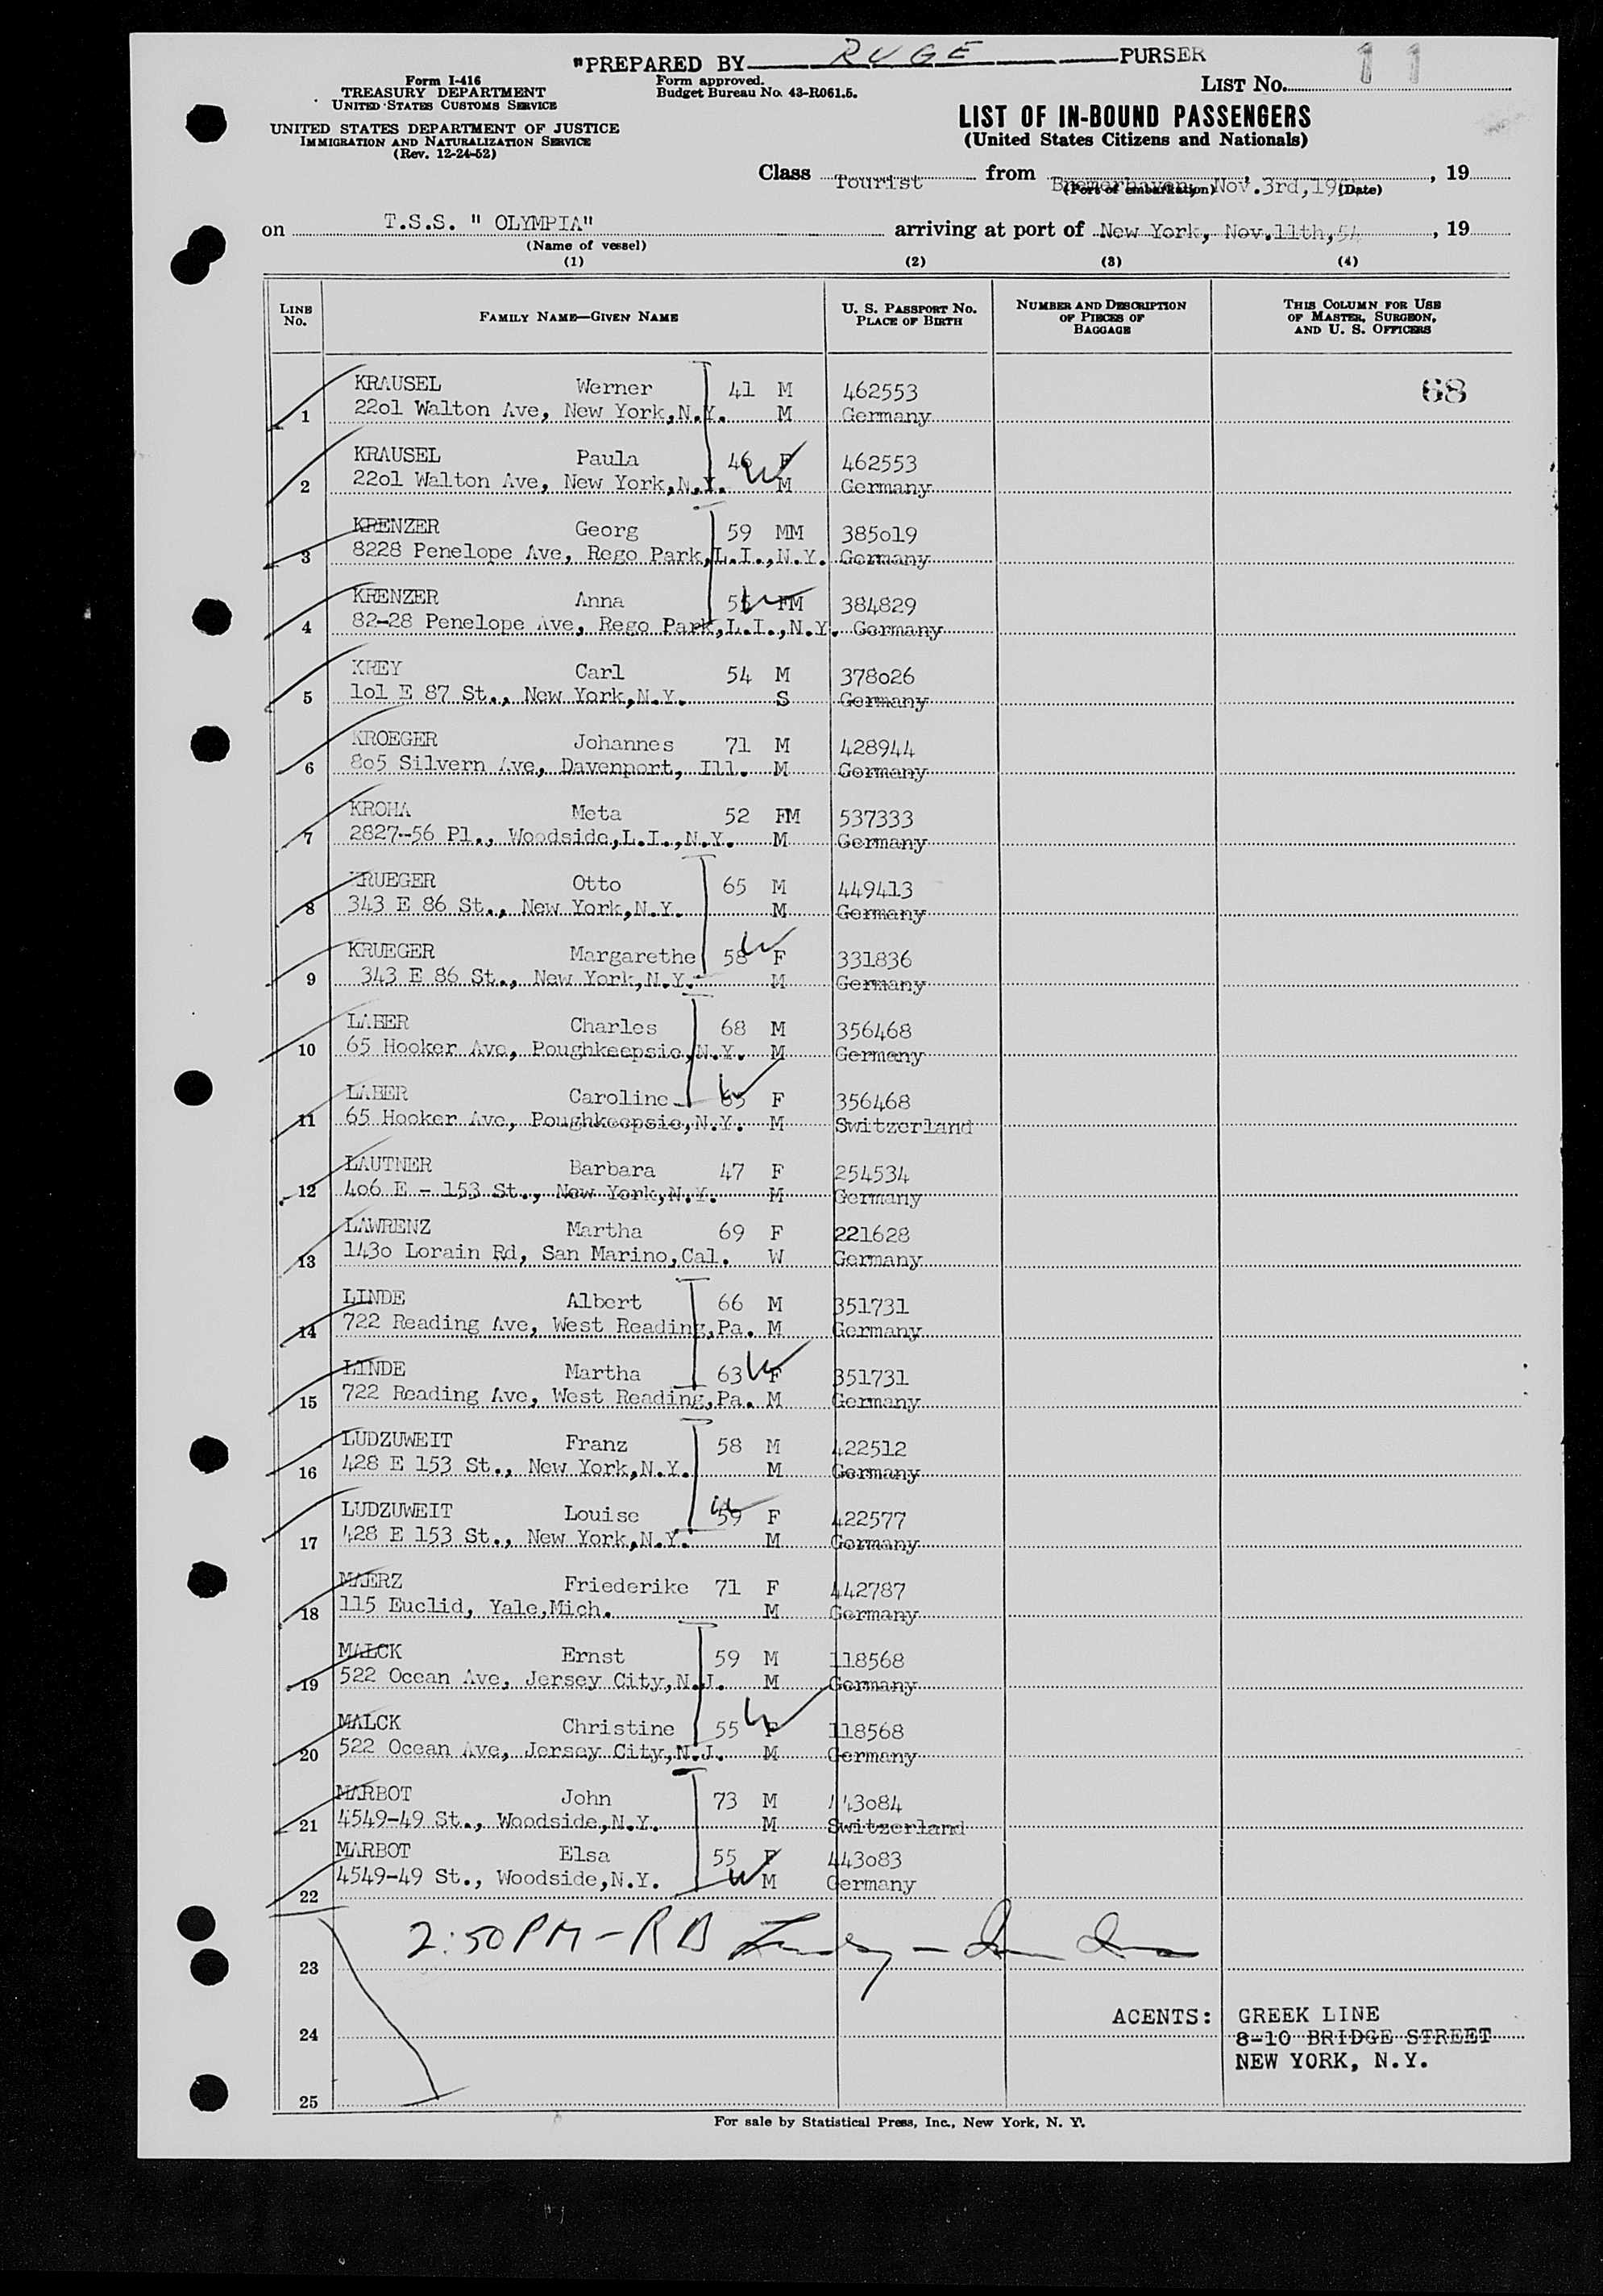 "PREPARED BY RUGE PURSER
Form I-416
TREASURY DEPARTMENT
UNITED STATES CUSTOMS SERVICE
UNITED STATES DEPARTMENT OF JUSTICE
IMMIGRATION AND NATURALIZATION SERVICE
(Rev. 12-24-52)
Form approved.
Budget Bureau No. 43-R061.5.
LIST No. 11
LIST OF IN-BOUND PASSENGERS
(United States Citizens and Nationals)
Class Tourist from Bremerhaven, Nov.3rd,19 , 19
(Port of embarkation) (Date)
on T.S.S. " OLYMPIA" arriving at port of New York, Nov.11th,54 , 19
(Name of vessel)
(1) (2) (3) (4)
LINE No. FAMILY NAME—GIVEN NAME U. S. PASSPORT No. PLACE OF BIRTH NUMBER AND DESCRIPTION OF PIECES OF BAGGAGE THIS COLUMN FOR USE OF MASTER, SURGEON, AND U. S. OFFICERS
KRAUSEL Werner 41 M 462553 68
1 22o1 Walton Ave, New York,N.Y. M Germany
KRAUSEL Paula 46 F 462553
2 22o1 Walton Ave, New York,N.Y. M Germany
KRENZER Georg 59 MM 385o19
3 8228 Penelope Ave, Rego Park,L.I.,N.Y. Germany
KRENZER Anna FM 384829
4 82-28 Penelope Ave, Rego Park,L.I.,N.Y. Germany
KREY Carl 54 M 378o26
5 1o1 E 87 St., New York,N.Y. S Germany
KROEGER Johannes 71 M 428944
6 8o5 Silvern Ave, Davenport, Ill. M Germany
KROHA Meta 52 FM 537333
7 2827-56 Pl., Woodside,L.I.,N.Y. M Germany
KRUEGER Otto 65 M 449413
8 343 E 86 St., New York,N.Y. M Germany
KRUEGER Margarethe 58 F 331836
9 343 E 86 St., New York,N.Y. M Germany
LABER Charles 68 M 356468
10 65 Hooker Ave, Poughkeepsie,N.Y. M Germany
LABER Caroline F 356468
11 65 Hooker Ave, Poughkeepsie,N.Y. M Switzerland
LAUTNER Barbara 47 F 254534
12 4o6 E - 153 St., New York,N.Y. M Germany
LAWRENZ Martha 69 F 221628
13 143o Lorain Rd, San Marino,Cal. W Germany
LINDE Albert 66 M 351731
14 722 Reading Ave, West Reading,Pa. M Germany
LINDE Martha 63 F 351731
15 722 Reading Ave, West Reading,Pa. M Germany
LUDZUWEIT Franz 58 M 422512
16 428 E 153 St., New York,N.Y. M Germany
LUDZUWEIT Louise 59 F 422577
17 428 E 153 St., New York,N.Y. M Germany
MAERZ Friederike 71 F 442787
18 115 Euclid, Yale,Mich. M Germany
MALCK Ernst 59 M 118568
19 522 Ocean Ave, Jersey City,N.J. M Germany
MALCK Christine 55 F 118568
20 522 Ocean Ave, Jersey City,N.J. M Germany
MARBOT John 73 M 443o84
21 4549-49 St., Woodside,N.Y. M Switzerland
MARBOT Elsa 55 F 443o83
22 4549-49 St., Woodside,N.Y. M Germany
2:50PM - RB
23
24
25
AGENTS: GREEK LINE
8-10 BRIDGE STREET
NEW YORK, N.Y.
For sale by Statistical Press, Inc., New York, N. Y.